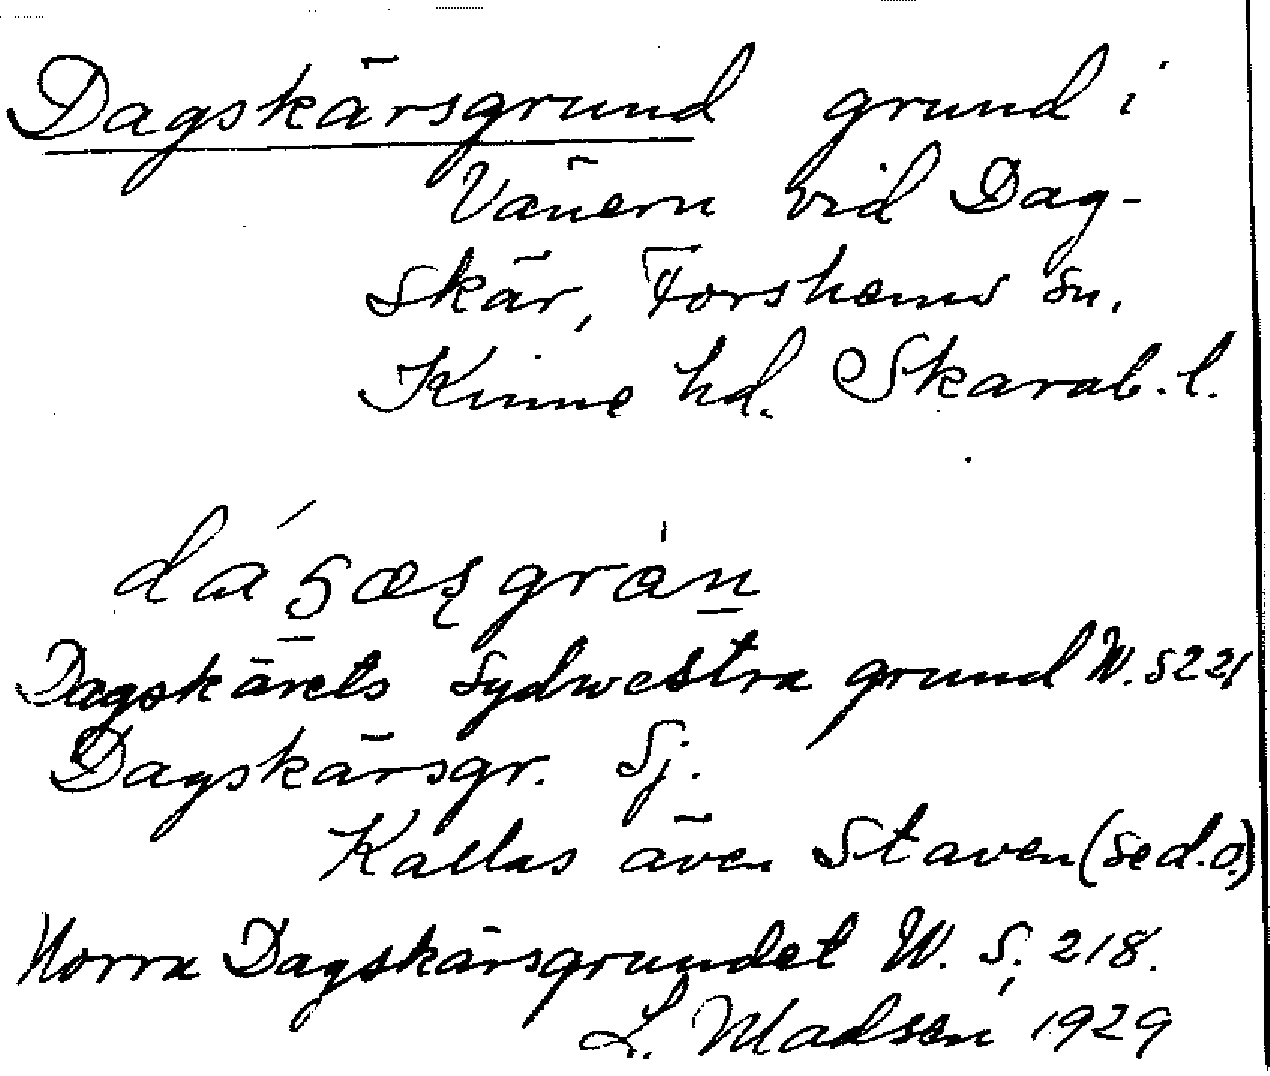 Dagskärsgrund grund i
Vänern vid Dag-
skär, Forshems sn.
Kinne hd. Skarab. l.
Dagskärets sydwestra grund W. S 221
Dagskärsgr. Sj.
Kallas även Staven (se d.o.)
Norra Dagskärsgrundet W. S. 218.
L. Madsén 1929